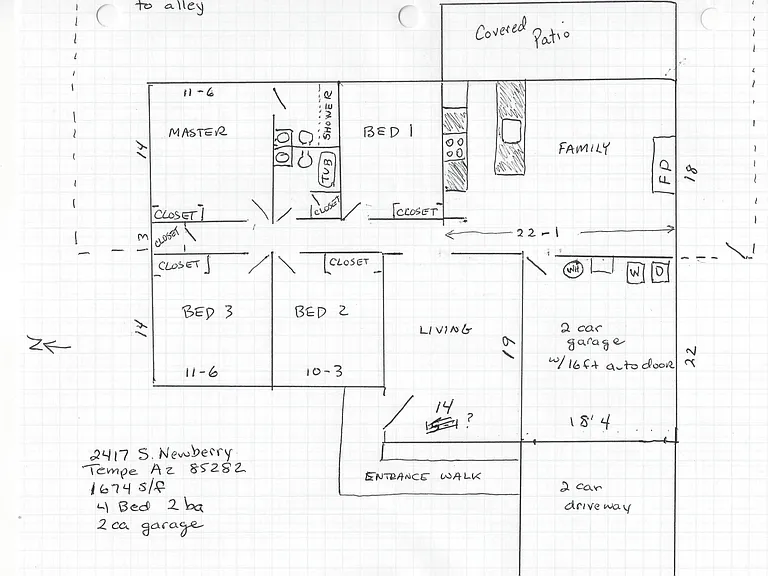 to alley
Covered Patio
11-6
SHOWER
MASTER
BED 1
FAMILY
14
TUB
FP
18
CLOSET
CLOSET
CLOSET
3
CLOSET
22-1
CLOSET
CLOSET
WH
W
D
BED 3
BED 2
LIVING
19
2 car
garage
w/16ft auto door
14
22
11-6
10-3
14
?
18'4
N
2417 S. Newberry
Tempe Az 85282
1674 s/f
4 Bed 2 ba
2 ca garage
ENTRANCE WALK
2 car
driveway